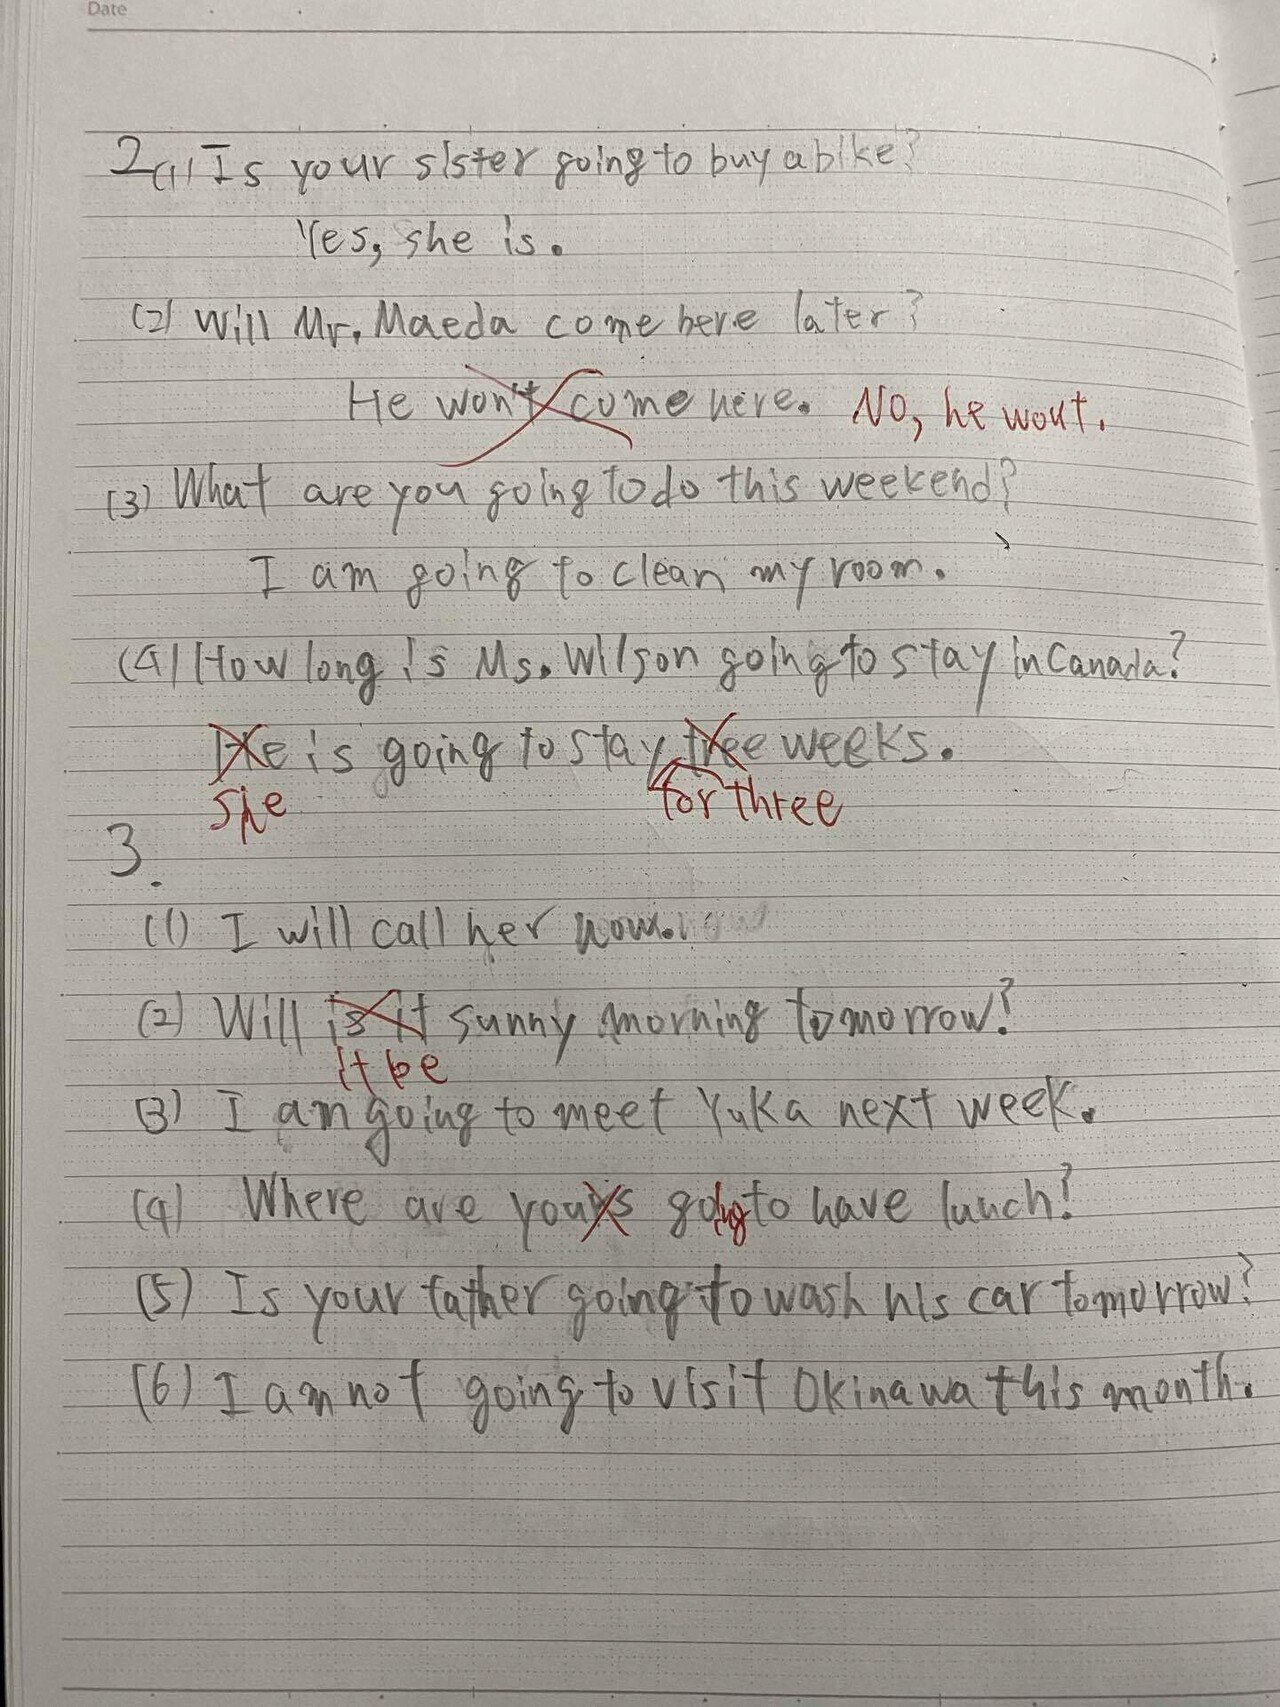 Date
2(1) Is your sister going to buy a bike?
Yes, she is.
(2) Will Mr. Maeda come here later?
He won't come here. No, he wout.
(3) What are you going to do this weekend?
I am going to clean my room.
(4) How long is Ms. Wilson going to stay in Canada?
He is going to stay tree weeks.
she for three
3.
(1) I will call her now.
(2) Will is it sunny morning tomorrow?
it be
(3) I am going to meet Yuka next week.
(4) Where are you going to have lunch?
(5) Is your father going to wash his car tomorrow?
(6) I am not going to visit Okinawa this month.